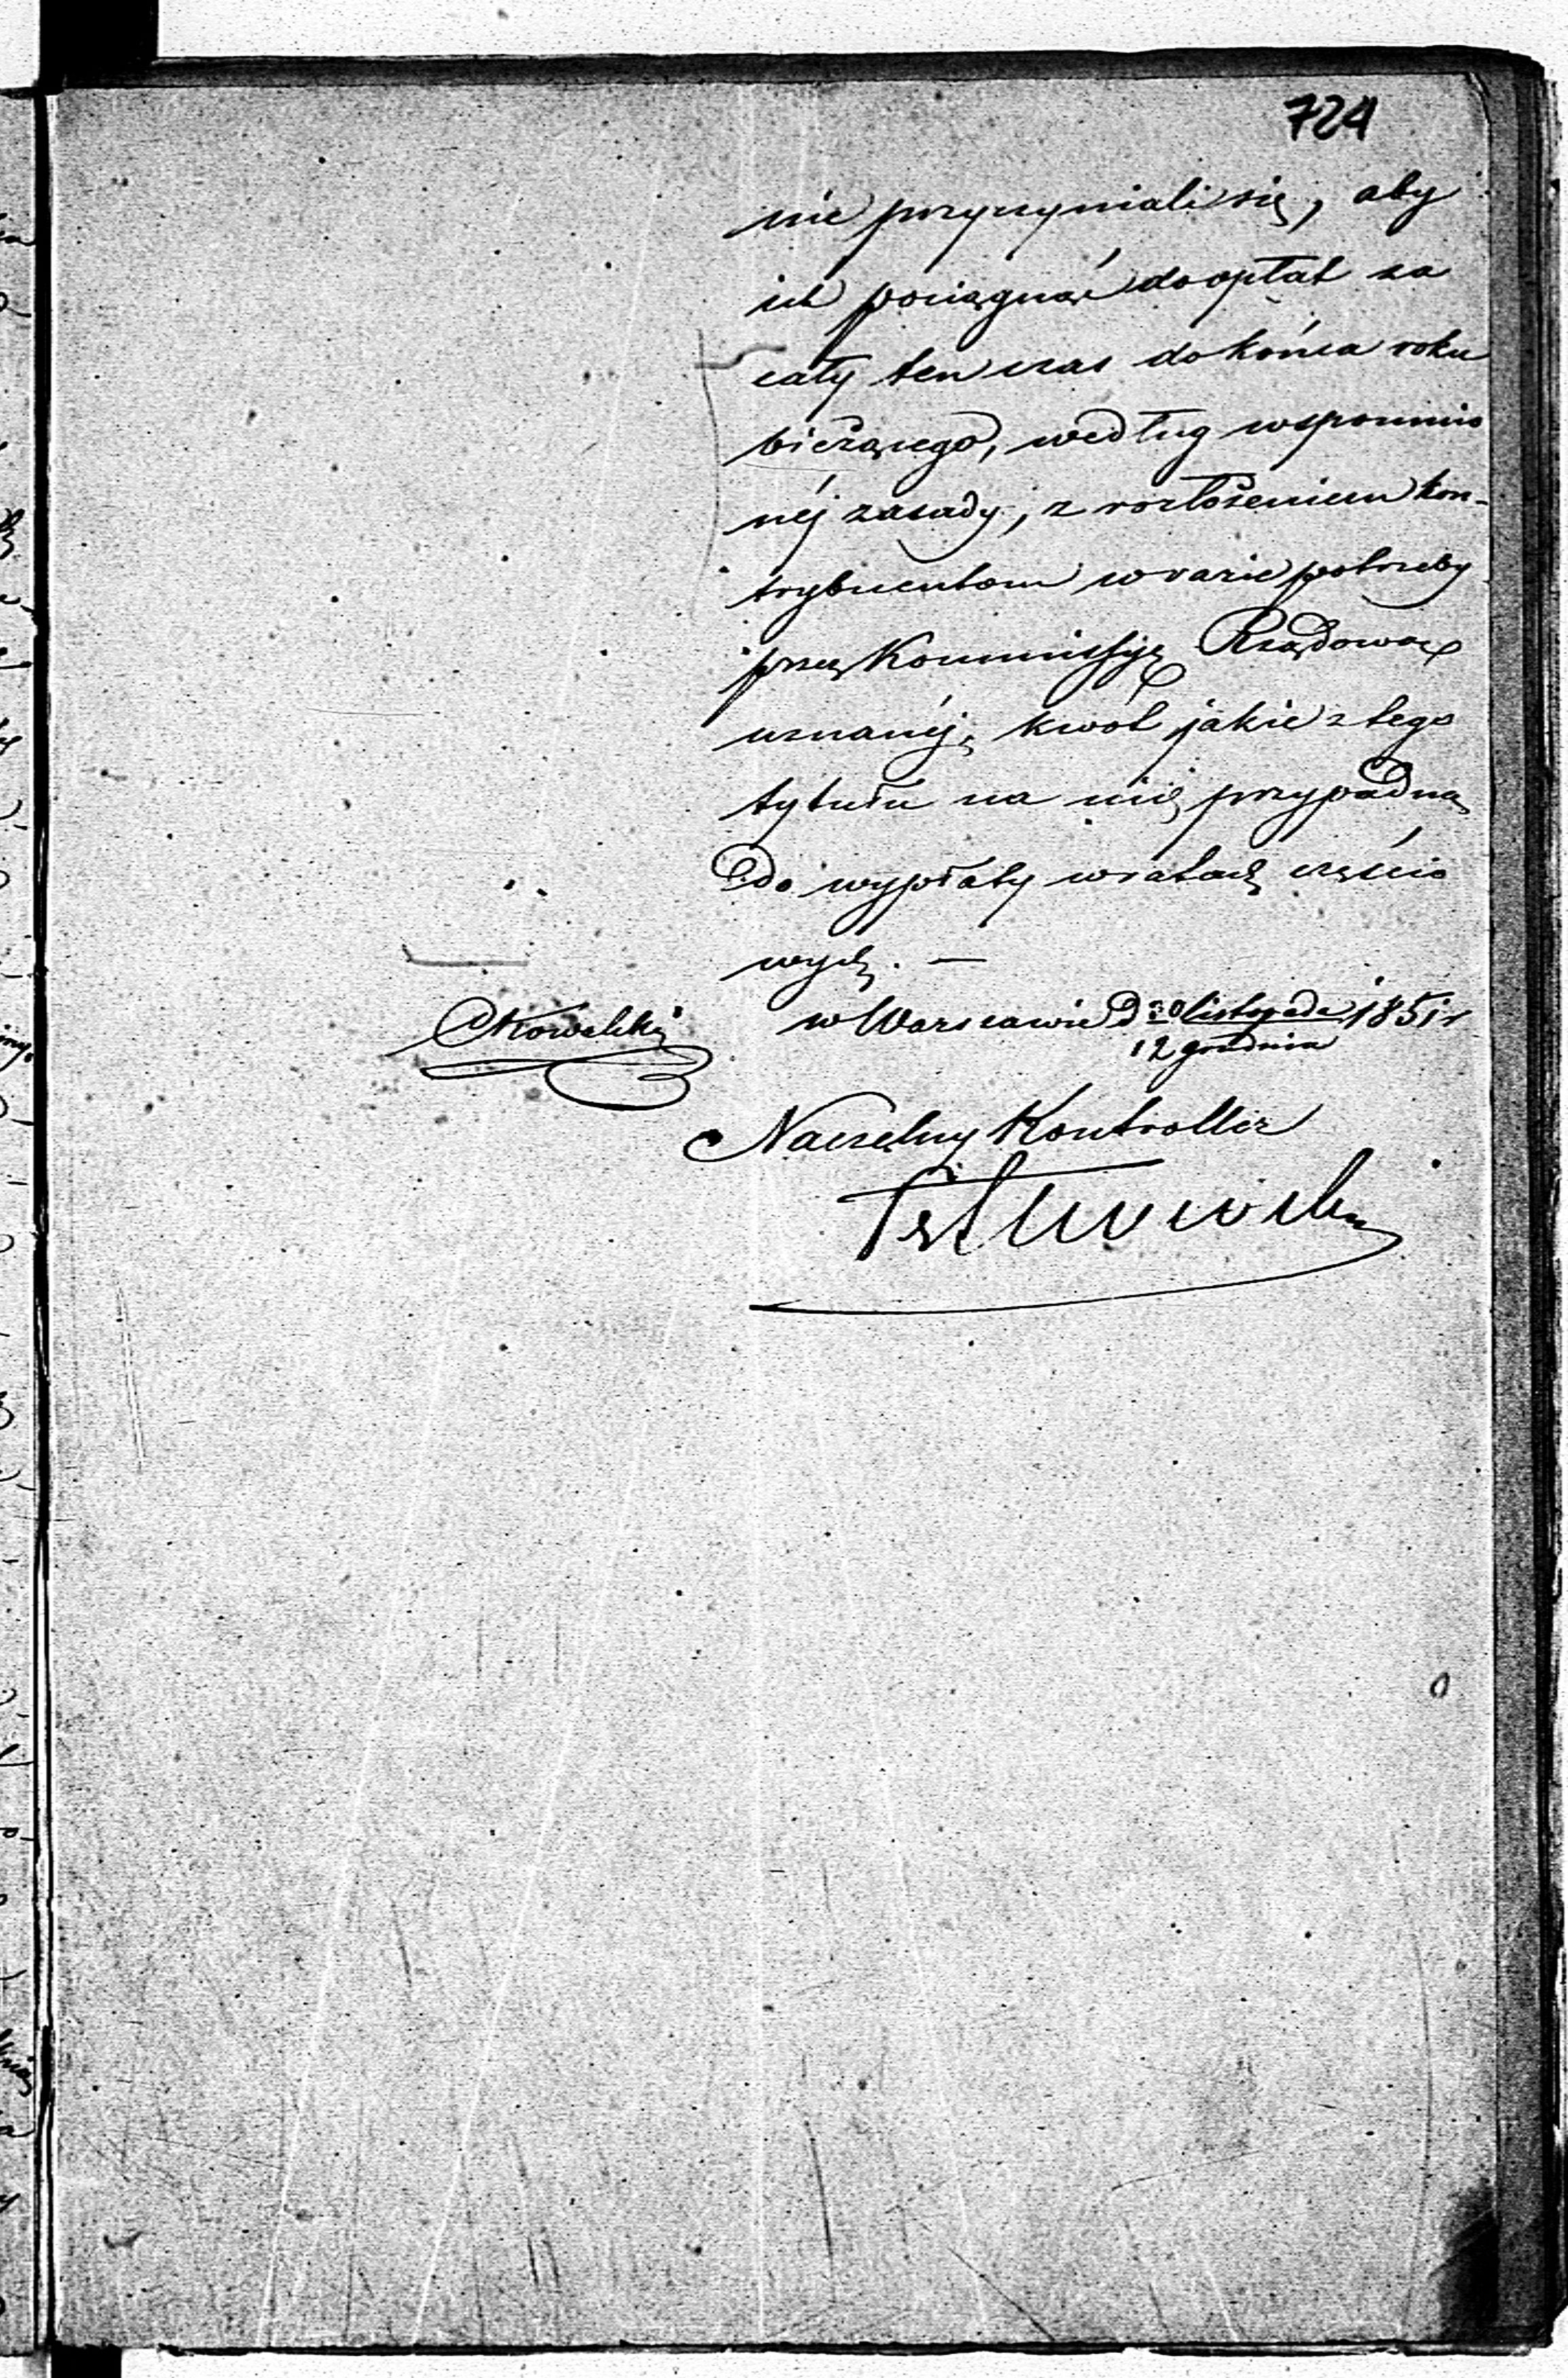 724
nie przyczyniali się, aby
ich pociągnąć do opłat za
cały ten czas do końca roku
bieżącego, według wspomnio
néj zasady, z rozłożeniem kon-
trybuentom w razie potrzeby
przez Kommissyę Rządową
uznanéj, kwot jakie z tego
tytułu na nich przypadną
do wypłaty w ratach częścio
wych. —
w Warszawie d 30 listopada 1851 r
12 grudnia
Nowelski
Naczelny Kontroller